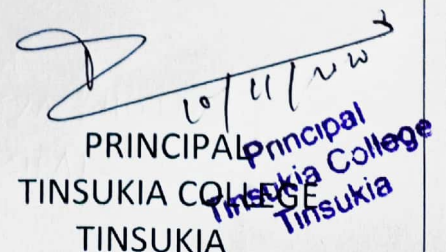 10/11/2020
PRINCIPAL
TINSUKIA COLLEGE
TINSUKIA
Principal
Tinsukia College
Tinsukia